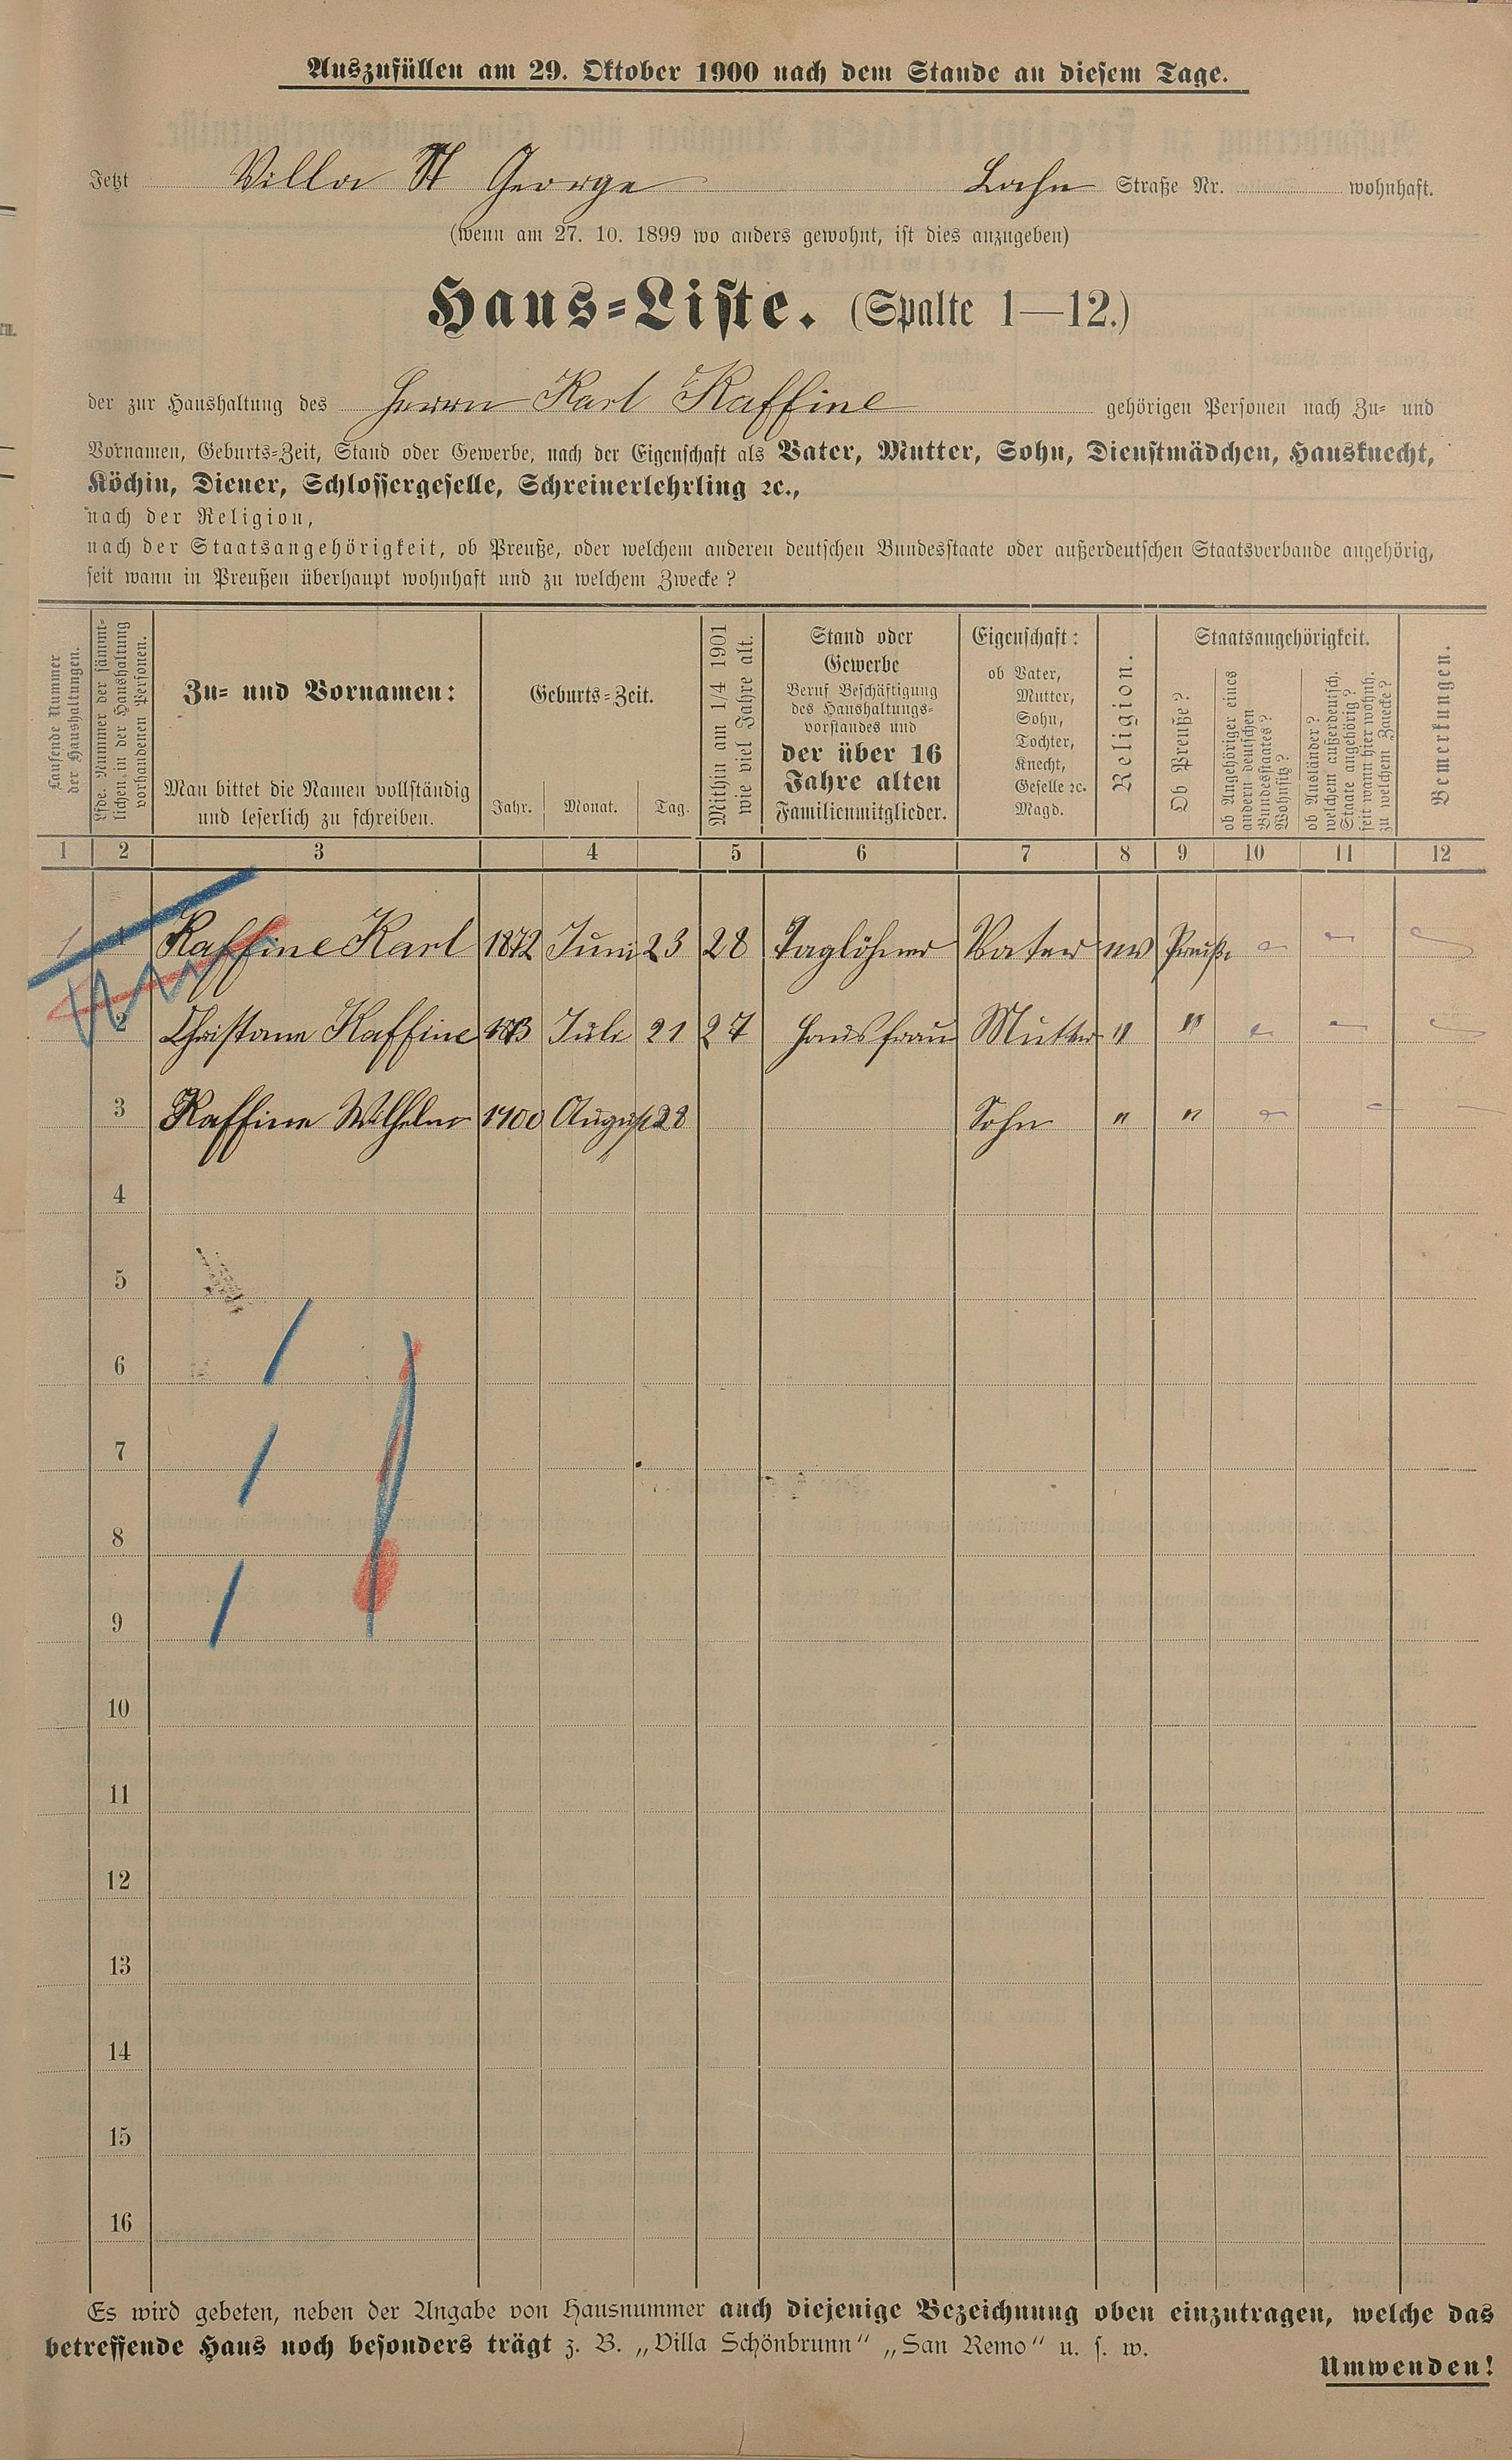 Auszufüllen am 29. Oktober 1900 nach dem Stande an diesem Tage.
Jetzt Villa St George Lahn Straße Nr. wohnhaft.
(wenn am 27. 10. 1899 wo anders gewohnt, ist dies anzugeben)
Haus-Liste. (Spalte 1—12.)
der zur Haushaltung des Herrn Karl Kaffine gehörigen Personen nach Zu- und
Vornamen, Geburts-Zeit, Stand oder Gewerbe, nach der Eigenschaft als Vater, Mutter, Sohn, Dienstmädchen, Hausknecht,
Köchin, Diener, Schlossergeselle, Schreinerlehrling ꝛc.,
nach der Religion,
nach der Staatsangehörigkeit, ob Preuße, oder welchem anderen deutschen Bundesstaate oder außerdeutschen Staatsverbande angehörig,
seit wann in Preußen überhaupt wohnhaft und zu welchem Zwecke?
Laufende Nummer
der Haushaltungen.
Lfde. Nummer der sämmt-
lichen in der Haushaltung
vorhandenen Personen.
Zu- und Vornamen:
Man bittet die Namen vollständig
und leserlich zu schreiben.
Geburts-Zeit.
Jahr. Monat. Tag.
Mithin am 1/4 1901
wie viel Jahre alt.
Stand oder
Gewerbe
Beruf Beschäftigung
des Haushaltungs-
vorstandes und
der über 16
Jahre alten
Familienmitglieder.
Eigenschaft:
ob Vater,
Mutter,
Sohn,
Tochter,
Knecht,
Geselle ꝛc.
Magd.
Religion.
Staatsangehörigkeit.
Ob Preuße?
ob Angehöriger eines
andern deutschen
Bundesstaates?
Wohnsitz?
ob Ausländer?
welchem außerdeutsch.
Staate angehörig?
seit wann hier wohnh.
zu welchem Zwecke?
Bemerkungen.
1 2 3 4 5 6 7 8 9 10 11 12
1 1 Kaffine Karl 1872 Juni 23 28 Taglöhner Vater ev Preuße - - -
2 Christane Kaffine 1873 Juli 21 27 Hausfrau Mutter " " - - -
3 Kaffine Wilhelm 1900 August 28 Sohn " " - - -
4
5
6
7
8
9
10
11
12
13
14
15
16
Es wird gebeten, neben der Angabe von Hausnummer auch diejenige Bezeichnung oben einzutragen, welche das
betreffende Haus noch besonders trägt z. B. „Villa Schönbrunn“ „San Remo“ u. s. w.
Umwenden!